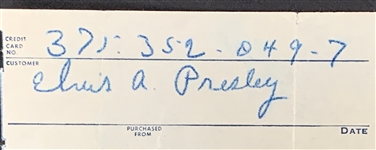 CREDIT CARD NO. 375-352-049-7
CUSTOMER
Elvis A. Presley
PURCHASED FROM DATE